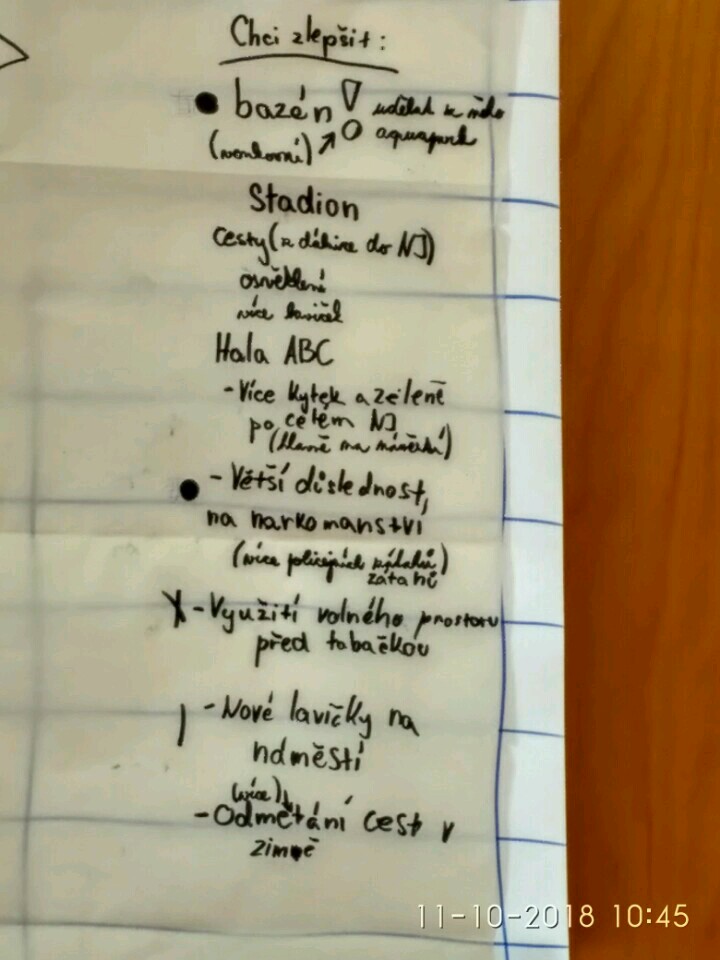 Chci zlepšit:
bazén! udělat z něho
(venkovní) aquapark
Stadion
cesty (z dálnice do NJ)
osvětlení
více laviček
Hala ABC
- Více kytek a zeleně
po celém NJ
(hlavně na náměstí)
- Větší důslednost,
na narkomanství
(více policejních
zátahů)
X - Využití volného prostoru
před tabačkou
- Nové lavičky na
náměstí
(více)
- Odmětání cest v
zimně
11-10-2018 10:45